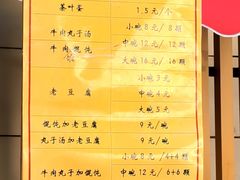 茶叶蛋 1.5元/个
小碗8元/8颗
牛肉丸子汤
牛肉馄饨 中碗12元/12颗
大碗16元/16颗
小碗3元
老豆腐 中碗4元
大碗5元
馄饨加老豆腐 9元/碗
丸子汤加老豆腐 9元/碗
小碗8元/4+4颗
牛肉丸子加馄饨 中碗12元/6+6颗